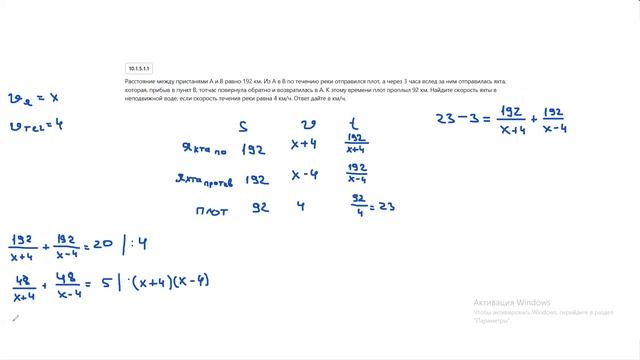 10.1.5.1.1
Расстояние между пристанями A и B равно 192 км. Из A в B по течению реки отправился плот, а через 3 часа вслед за ним отправилась яхта,
которая, прибыв в пункт B, тотчас повернула обратно и возвратилась в A. К этому времени плот проплыл 92 км. Найдите скорость яхты в
неподвижной воде, если скорость течения реки равна 4 км/ч. Ответ дайте в км/ч.
v я = x
v теч = 4
S v t
яхта по 192 x+4 192/(x+4)
яхта против 192 x-4 192/(x-4)
плот 92 4 92/4 = 23
23 - 3 = 192/(x+4) + 192/(x-4)
192/(x+4) + 192/(x-4) = 20 | : 4
48/(x+4) + 48/(x-4) = 5 | · (x+4)(x-4)
Активация Windows
Чтобы активировать Windows, перейдите в раздел
"Параметры".